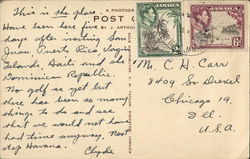 A PHOTOGRAPH
POST C
BY J. ARTHUR
JAMAICA
JAMAICA
2
6
This is the place.
Have been here
days after visiting San
Juan Puerto Rico, Virgin
Islands, Haiti and the
Dominican Republic.
No golf as yet but
there has been so many
things to do and see
that we would not have
had time anyway. Next
stop Havana.
Clyde
Mr. C. H. Carr
8409 So. Drexel
Chicago 19,
Ill.
U.S.A.